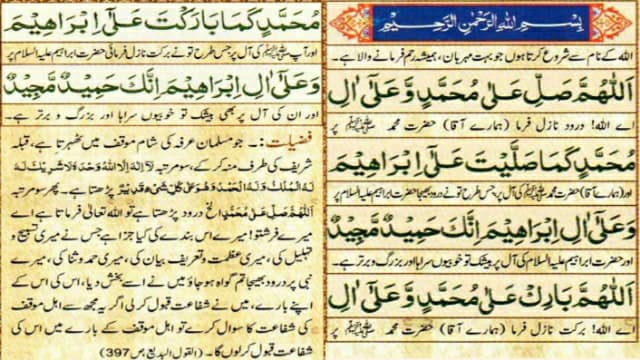 بِسْمِ اللهِ الرَّحْمٰنِ الرَّحِيْمِ
اللہ کے نام سے شروع کرتا ہوں جو بہت مہربان، ہمیشہ رحم فرمانے والا ہے۔
اَللّٰهُمَّ صَلِّ عَلٰى مُحَمَّدٍ وَّعَلٰٓى اٰلِ
اے اللہ! درود نازل فرما (ہمارے آقا) حضرت محمد ﷺ پر
مُحَمَّدٍ كَمَا صَلَّيْتَ عَلٰٓى اِبْرَاهِيْمَ
اور (ہمارے آقا) حضرت محمد ﷺ کی آل پر جس طرح تو نے درود بھیجا حضرت ابراہیم علیہ السلام پر
وَعَلٰٓى اٰلِ اِبْرَاهِيْمَ اِنَّكَ حَمِيْدٌ مَّجِيْدٌ
اور حضرت ابراہیم علیہ السلام کی آل پر بیشک تو خوبیوں سراہا اور بزرگ و برتر ہے۔
اَللّٰهُمَّ بَارِكْ عَلٰى مُحَمَّدٍ وَّعَلٰٓى اٰلِ
اے اللہ! برکت نازل فرما (ہمارے آقا) حضرت محمد ﷺ پر
مُحَمَّدٍ كَمَا بَارَكْتَ عَلٰٓى اِبْرَاهِيْمَ
اور آپ ﷺ کی آل پر جس طرح تو نے برکت نازل فرمائی حضرت ابراہیم علیہ السلام پر
وَعَلٰٓى اٰلِ اِبْرَاهِيْمَ اِنَّكَ حَمِيْدٌ مَّجِيْدٌ
اور ان کی آل پر بھی بیشک تو خوبیوں سراہا اور بزرگ و برتر ہے۔
فضیلت:۔ جو مسلمان عرفہ کی شام موقف میں ٹھہرتا ہے، قبلہ
شریف کی طرف منہ کر کے، سو مرتبہ لَا اِلٰهَ اِلَّا اللهُ وَحْدَهٗ لَا شَرِيْكَ لَهٗ
لَهُ الْمُلْكُ وَلَهُ الْحَمْدُ وَهُوَ عَلٰى كُلِّ شَىْءٍ قَدِيْرٌ پڑھتا ہے۔ پھر سو مرتبہ
اَللّٰهُمَّ صَلِّ عَلٰى مُحَمَّدٍ الخ درود پڑھتا ہے تو اللہ تعالیٰ فرماتا ہے اے
میرے فرشتو! میرے اس بندے کی کیا جزا ہے جس نے میری تسبیح و
تہلیل کی، میری عظمت و تعریف بیان کی، میری حمد و ثنا کی، میرے
نبی پر درود بھیجا تم گواہ ہو جاؤ میں نے اسے بخش دیا، اس کی اس کے
اپنے بارے، میں نے شفاعت قبول کر لی اگر یہ مجھ سے اہل موقف
کی شفاعت کا سوال کرے تو اہل موقف کے بارے میں اس کی
شفاعت قبول کر لوں گا۔ (القول البدیع ص 397)